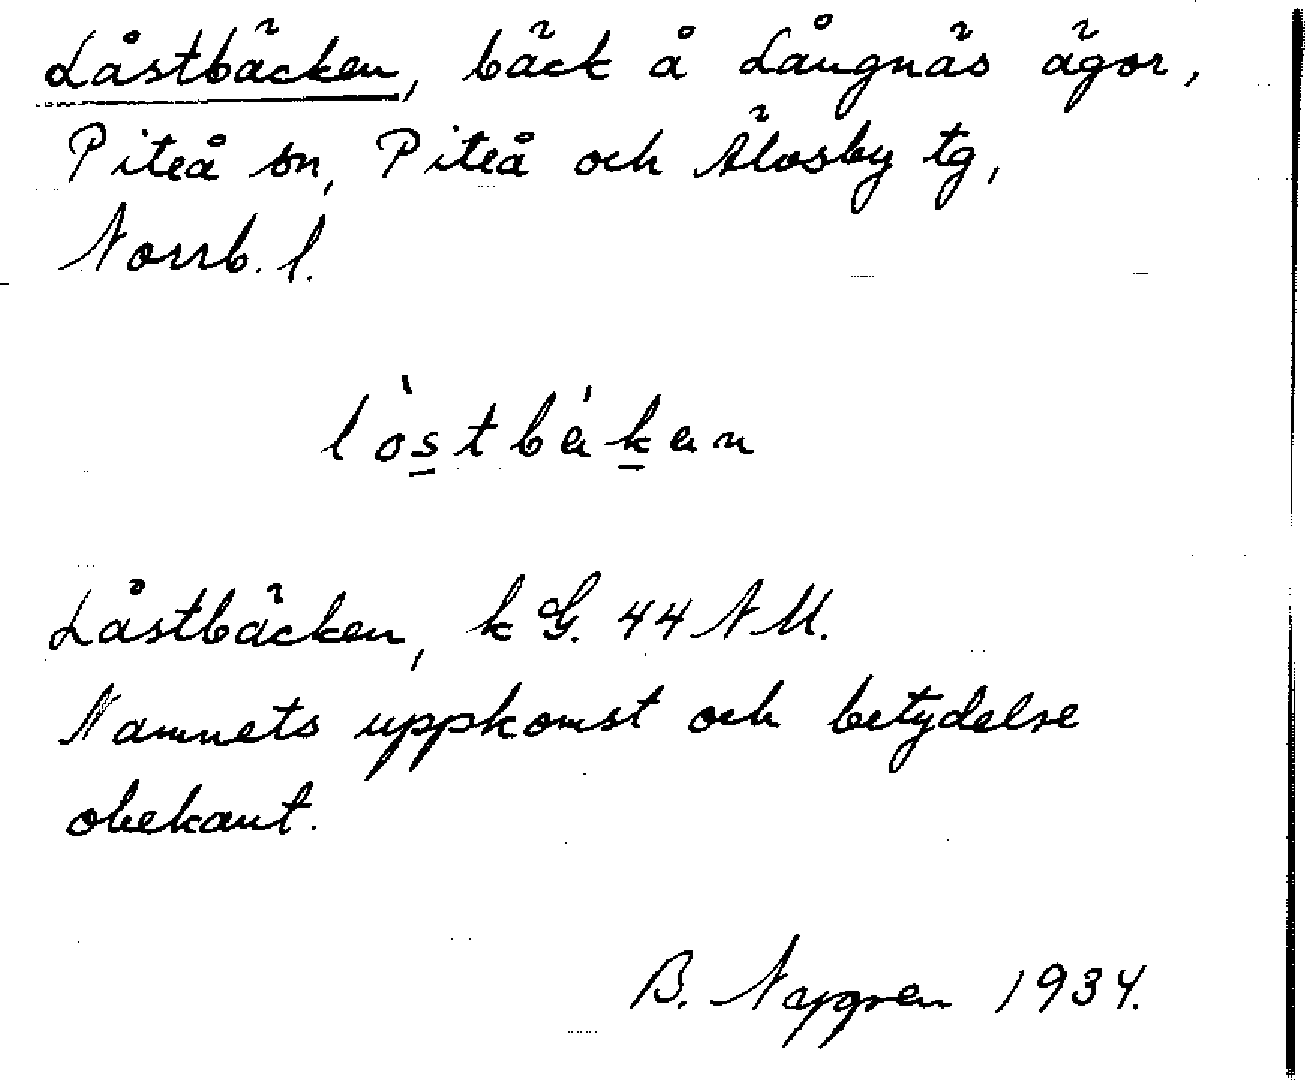 Låstbäcken, bäck å Långnäs ägor,
Piteå sn, Piteå och Älvsby tg,
Norrb. l.
lòstbákan
Låstbäcken, k G. 44 NM.
Namnets uppkomst och betydelse
obekant.
B. Nygren 1934.